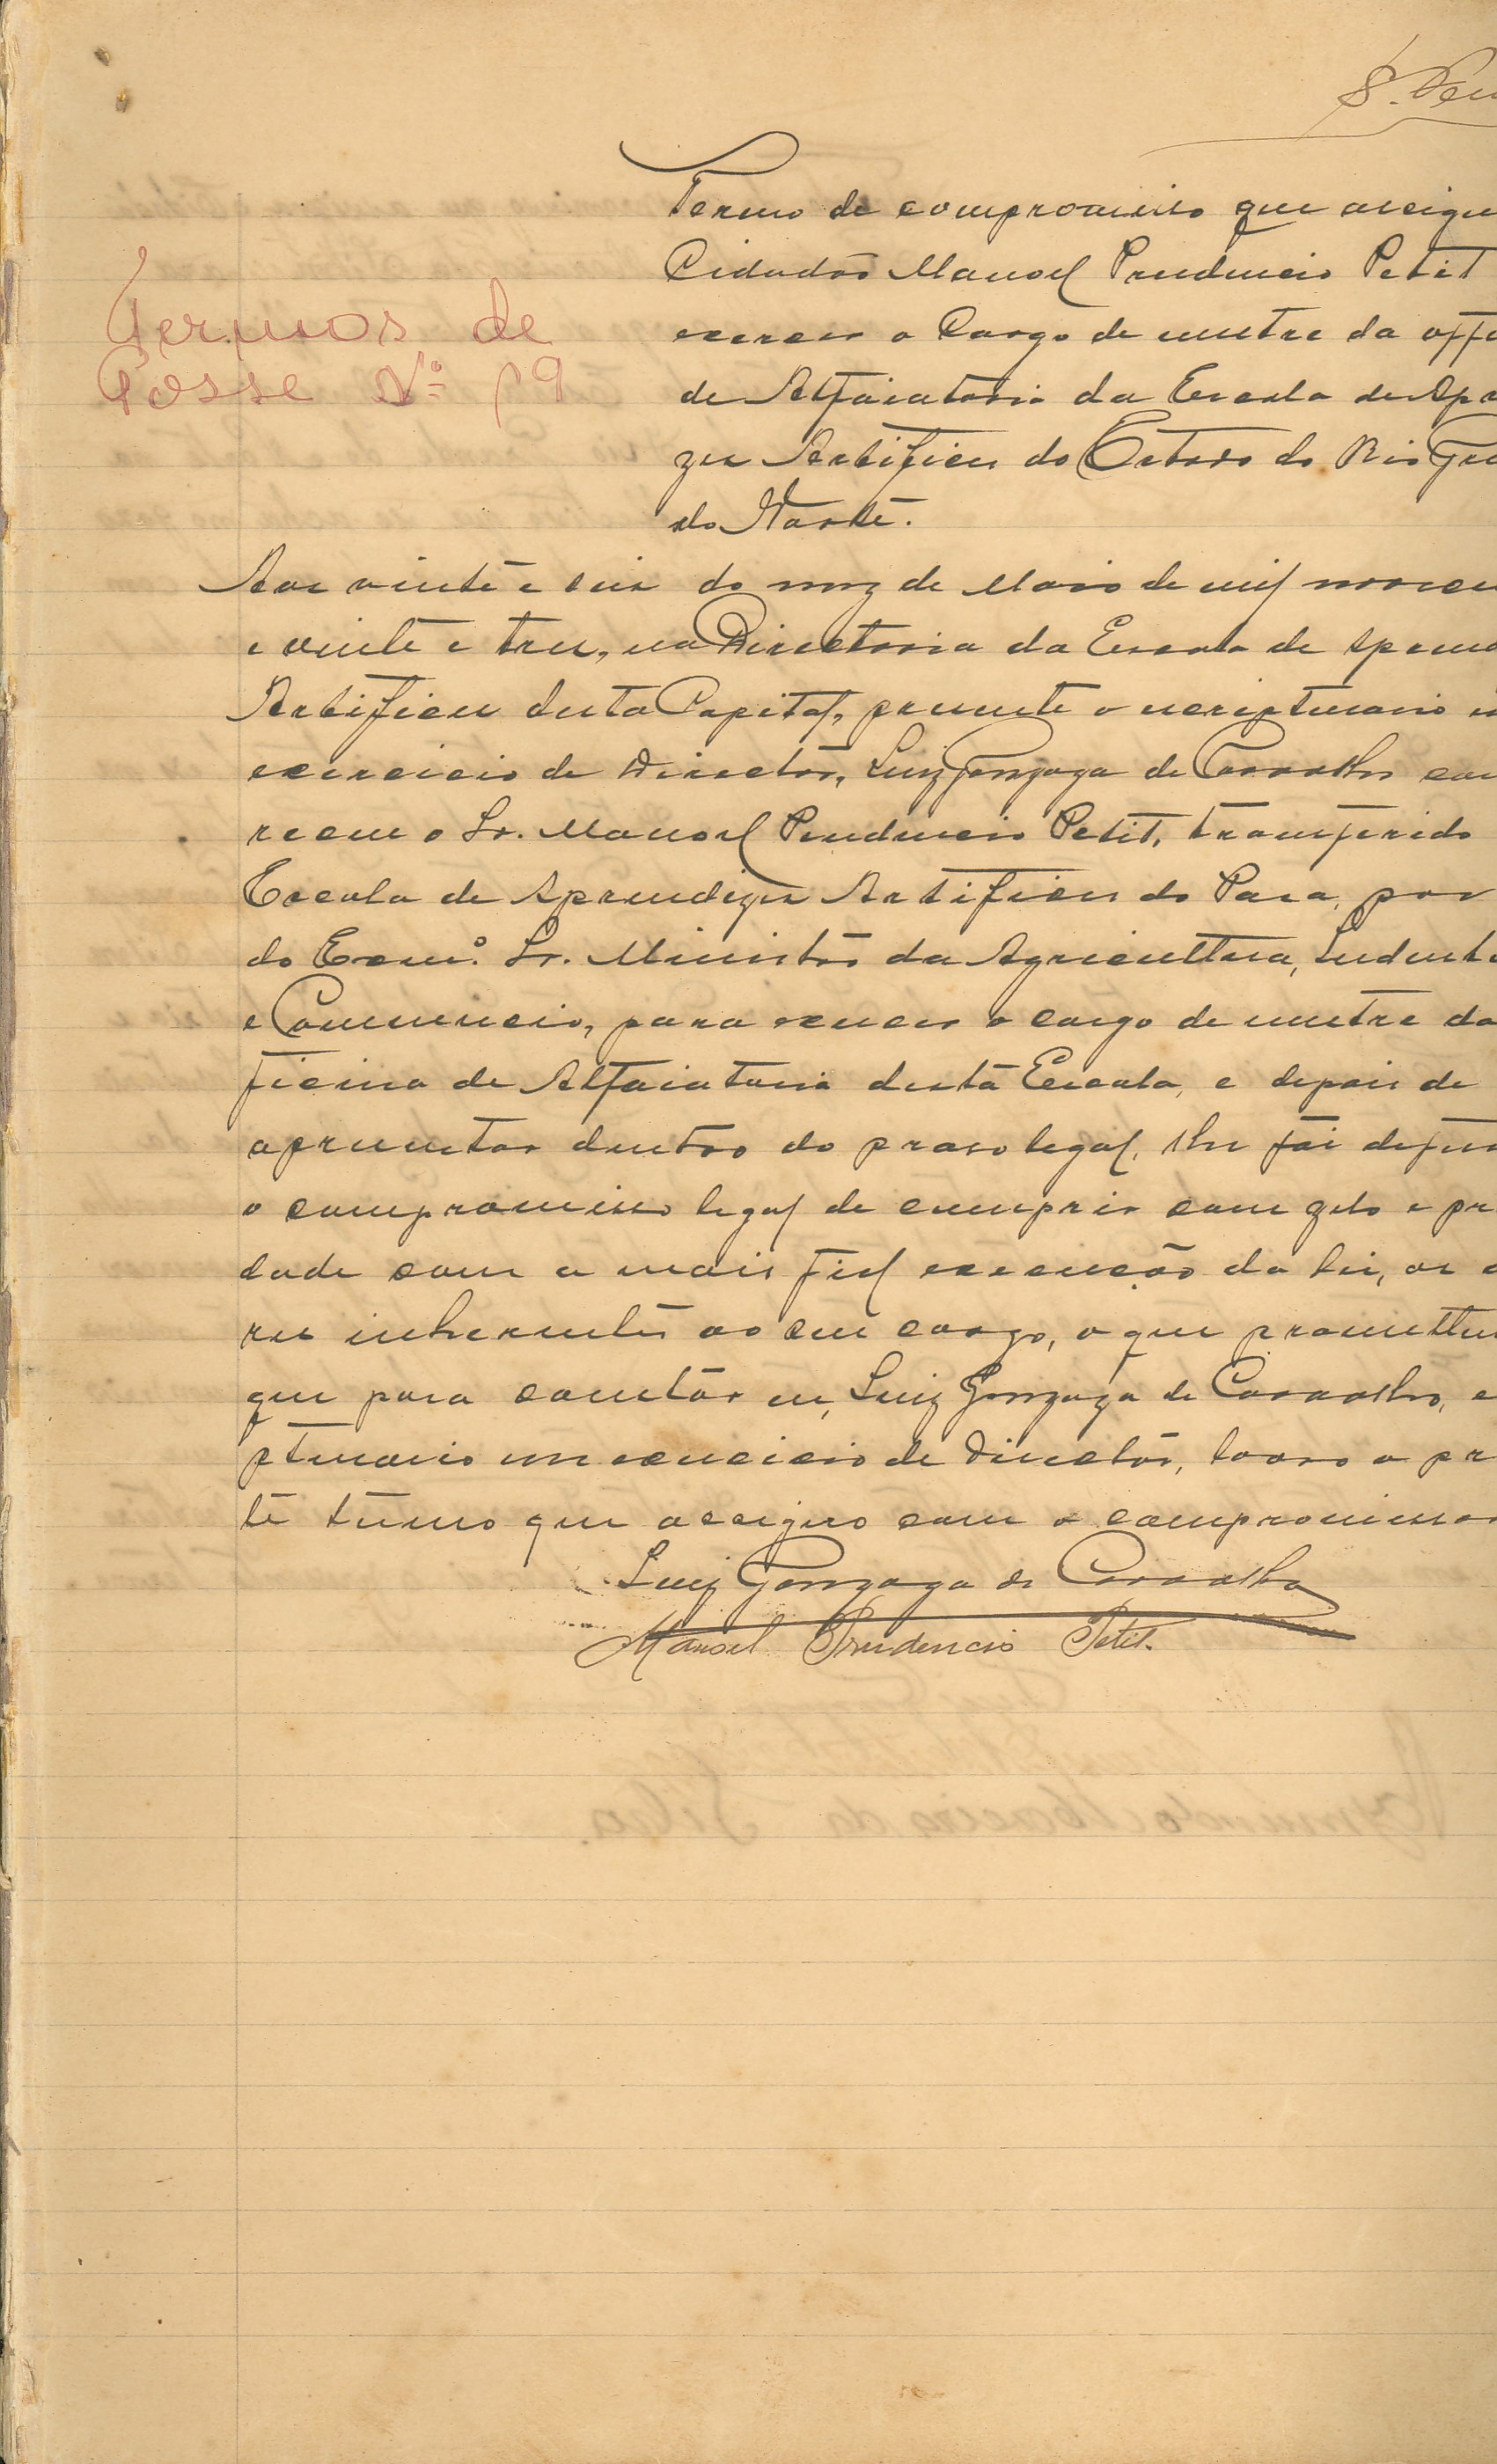 S. Pen
Termo de compromisso que assign
Cidadão Manoel Prudencio Petit
exercer o Cargo de mestre da offi
Termos de
Posse Nº 19
de Alfaiataria da Escola de Apr
zes Artifices do Estado do Rio Gra
do Norte.
Aos vinte e seis do mez de Maio de mil novecen
e vinte e tres, na Directoria da Escola de Apren
Artifices desta Capital, presente o escripturario e
exercicio de Director, Luiz Gonzaga de Carvalho com
receu o Sr. Manoel Prudencio Petit, transferido
Escola de Aprendizes Artifices do Pará, por
do Exmº. Sr. Ministro da Agricultura, Industr
e Commercio, para exercer o cargo de mestre da
ficina de Alfaiataria desta Escola, e depois de
apresentar dentro do praso legal, lhe foi defer
o compromisso legal de cumprir com zelo e pr
dade com a mais fiel execução da lei, os
res inherentes ao seu cargo, o que prometteu
que para constar eu, Luiz Gonzaga de Carvalho, e
pturario em exercicio de Director, lavro o pr
te termo que assigno com o compromissa
Luiz Gonzaga de Carvalho
Manoel Prudencio Petit.